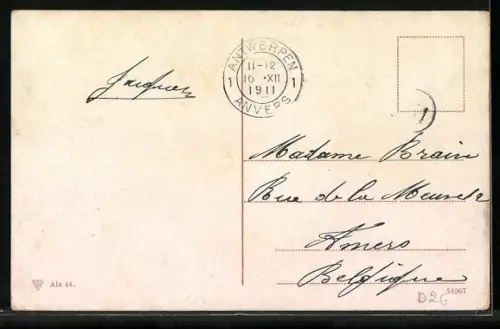 ANTWERPEN
11-12
16 XII
1911
1 1
ANVERS
Jacques
1
Madame Brain
Rue de la Meuse
Anvers
Belgique
Als 44.
54967
D26